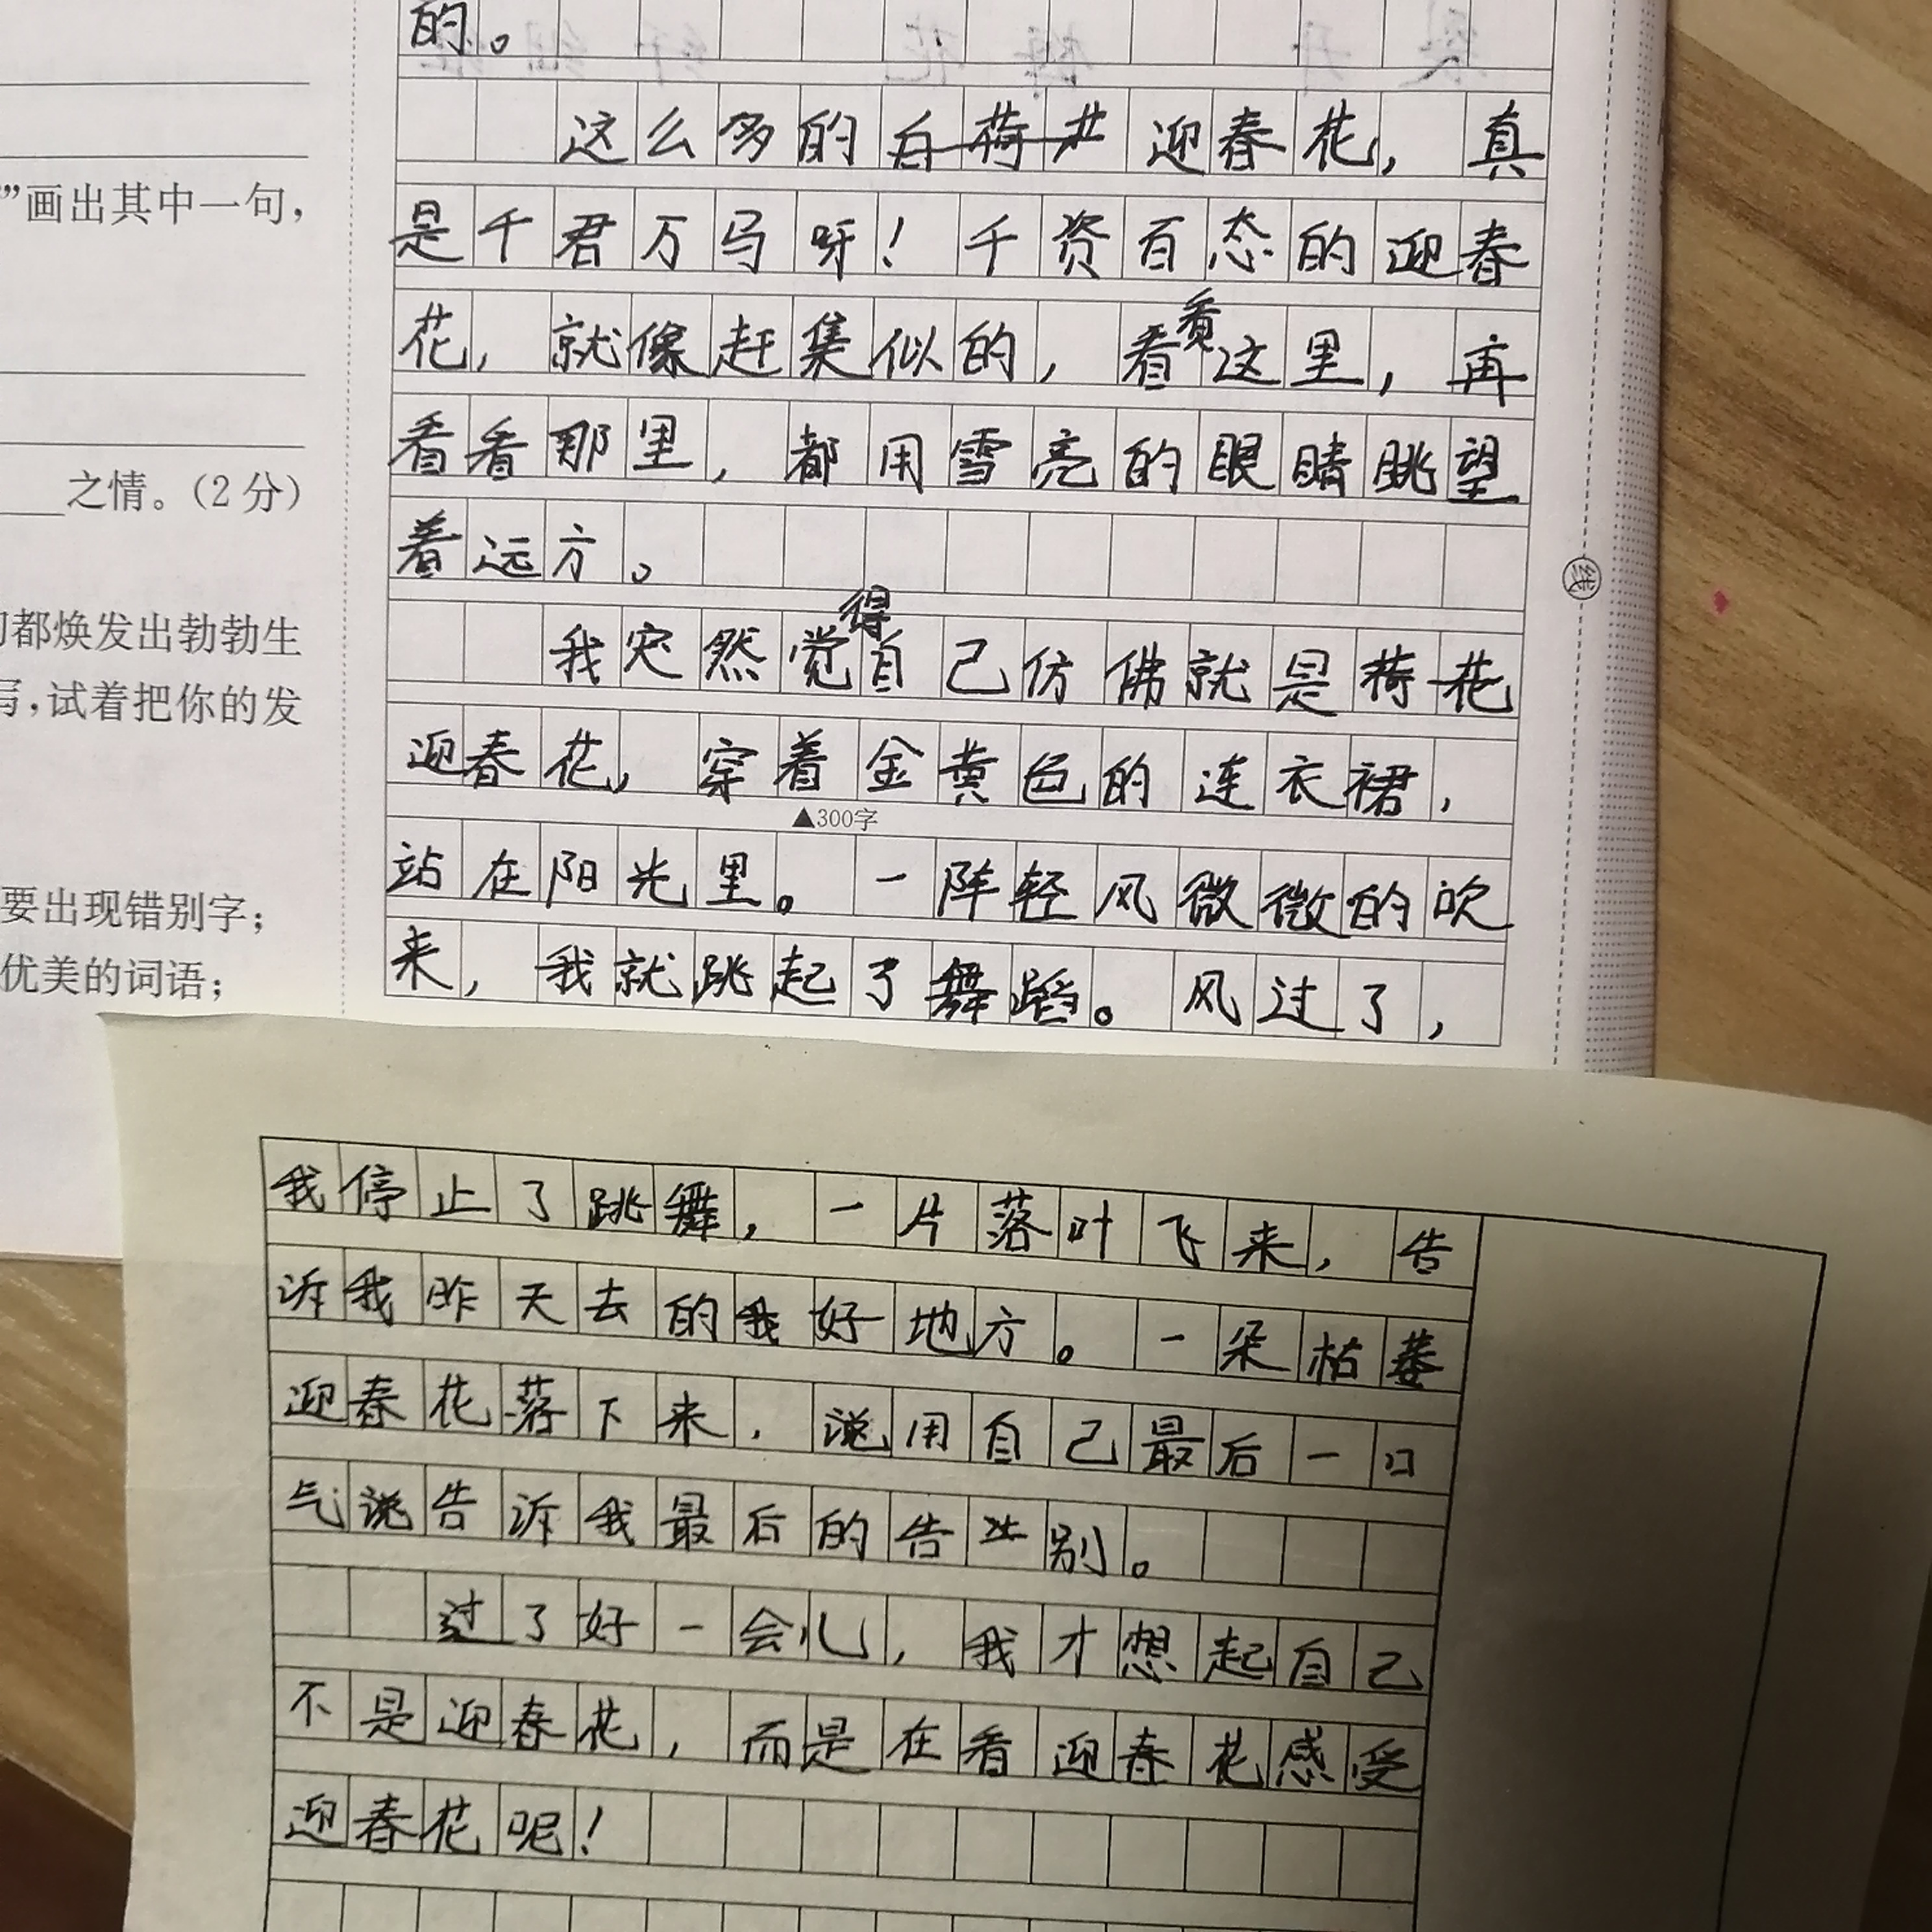 的。
这么多的白荷艹迎春花，真
是千君万马呀！千资百态的迎春
花，就像赶集似的，看看这里，再
看看那里，都用雪亮的眼睛眺望
着远方。
我突然觉得自己仿佛就是荷花
迎春花，穿着金黄色的连衣裙，
▲300字
站在阳光里。一阵轻风微微的吹
来，我就跳起了舞蹈。风过了，
”画出其中一句，
之情。（2分）
都焕发出勃勃生
写，试着把你的发
要出现错别字；
优美的词语；
线
我停止了跳舞，一片落叶飞来，告
诉我昨天去的我好地方。一朵枯萎
迎春花落下来，说用自己最后一口
气说告诉我最后的告别。
过了好一会儿，我才想起自己
不是迎春花，而是在看迎春花感受
迎春花呢！